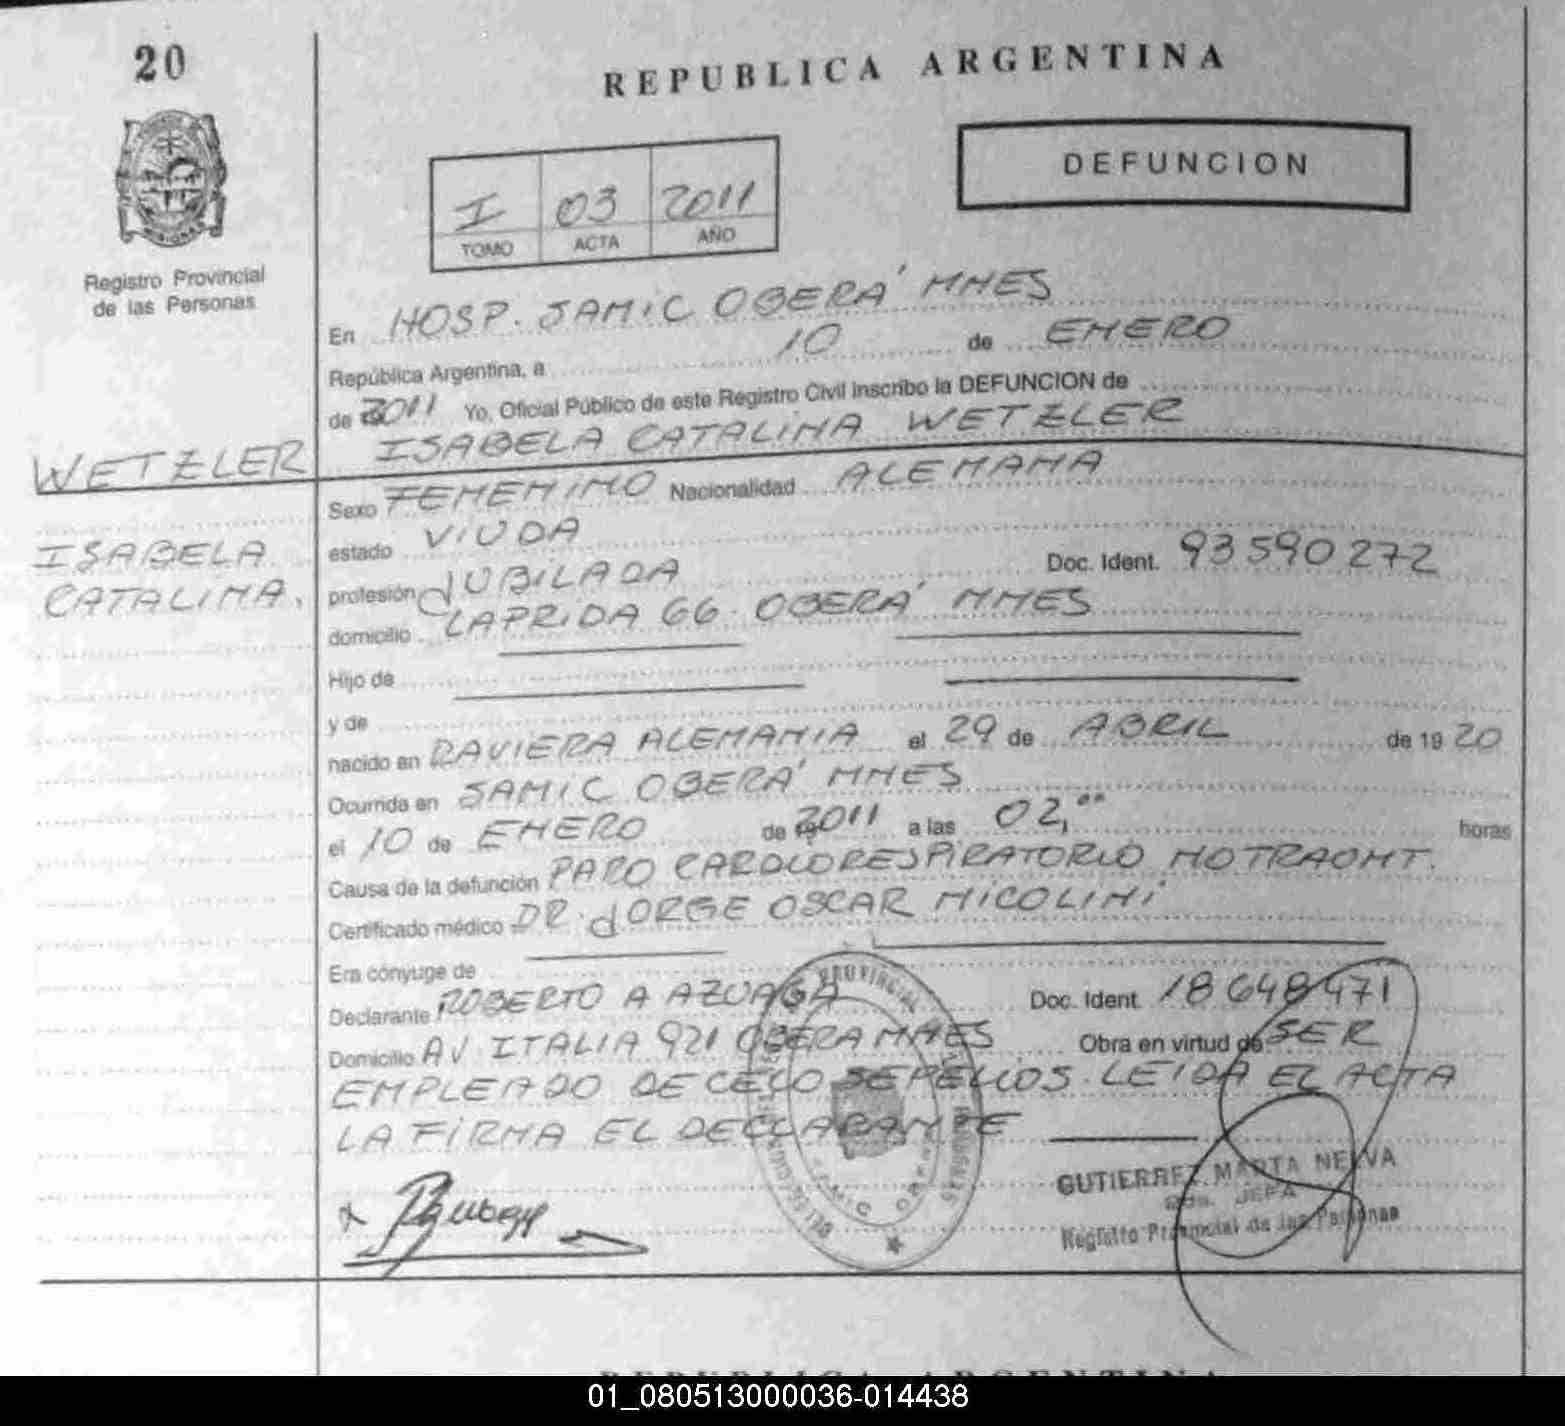 20
REPUBLICA ARGENTINA
DEFUNCION
I 03 2011
TOMO ACTA AÑO
MISIONES
Registro Provincial
de las Personas
En HOSP. SAMIC OBERA' MNES
República Argentina, a 10 de ENERO
de 2011 Yo, Oficial Público de este Registro Civil inscribo la DEFUNCION de
ISABELA CATALINA WETZLER
WETZLER
ISABELA
CATALINA,
Sexo FEMENINO Nacionalidad ALEMANA
estado VIUDA
profesión JUBILADA Doc. Ident. 93590272
domicilio LAPRIDA 66 OBERA' MNES
Hijo de
y de
nacido en BAVIERA ALEMANIA el 29 de ABRIL de 19 20
Ocurrida en SAMIC OBERA' MNES
el 10 de ENERO de 2011 a las 02,°° horas
Causa de la defunción PARO CARDIORESPIRATORIO NOTRAUMT.
Certificado médico DR. JORGE OSCAR NICOLINI
Era cónyuge de
Declarante ROBERTO A AZUAGA Doc. Ident. 18648471
Domicilio AV. ITALIA 921 OBERA MNES Obra en virtud de SER
EMPLEADO DE CELO SEPELIOS. LEIDA EL ACTA
LA FIRMA EL DECLARANTE
PROVINCIAL
GUTIERREZ MARTA NELVA
JEFA
Registro Provincial de las Personas
REPUBLICA ARGENTINA
01_080513000036-014438